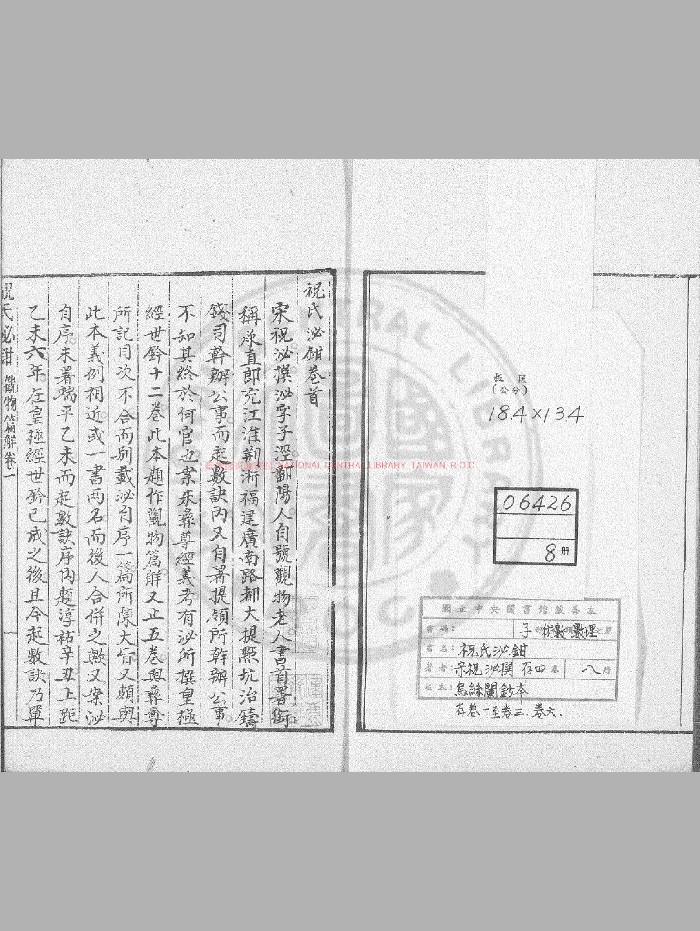 板匡
(公分)
18.4×13.4
06426
8冊
國立中央圖書館藏善本
子 術數 數理
書名：祝氏泌鉗
著者：宋祝泌撰 存四卷 八冊
版本：烏絲闌鈔本
存卷一至卷三、卷六.
NATIONAL CENTRAL LIBRARY TAIWAN R.O.C
祝氏泌鉗卷首
宋祝泌撰泌字子涇鄱陽人自號觀物老人書首署銜
稱承直郎充江淮荆浙福建廣南路都大提㸃坑冶鑄
錢司幹辦公事而起數訣內又自署提領所幹辦公事
不知其終於何官也案朱彝尊經義考有泌所撰皇極
經世鈐十二卷此本題作觀物篇解又止五卷與彝尊
所記目次不合而别載泌自序一篇所陳大旨又頗與
此本義例相近或一書兩名而後人合併之歟又案泌
自序末署端平乙未而起數訣序內題淳祐辛丑上距
乙未六年在皇極經世鈐已成之後且今起數訣乃單
祝氏泌鉗 觀物篇解卷一